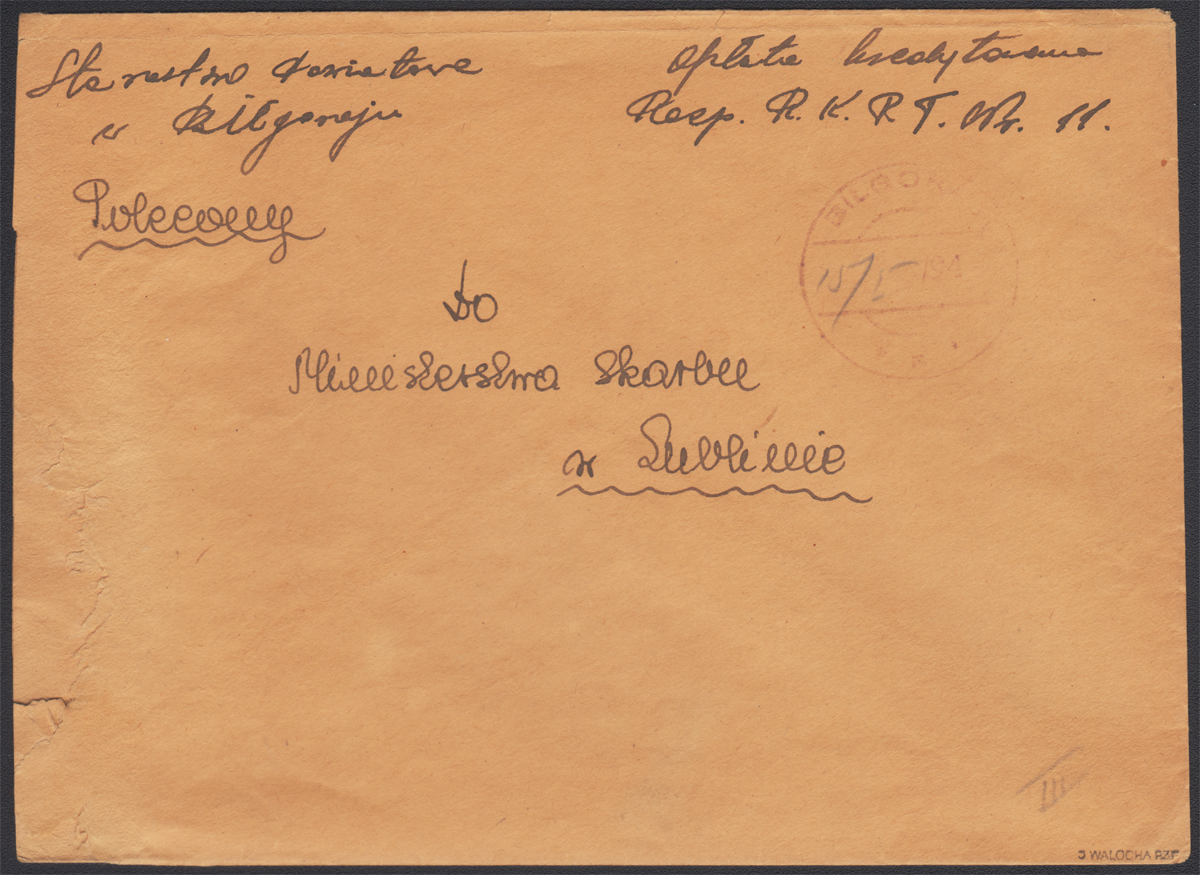 Starostwo Powiatowe
w Biłgoraju
Opłata kredytowana
Rozp. R. K. P. T. Nr. 11.
Polecony
BILGOR
15/I 194
Do
Ministerstwa Skarbu
w Lublinie
III
J WALOCHA PZF